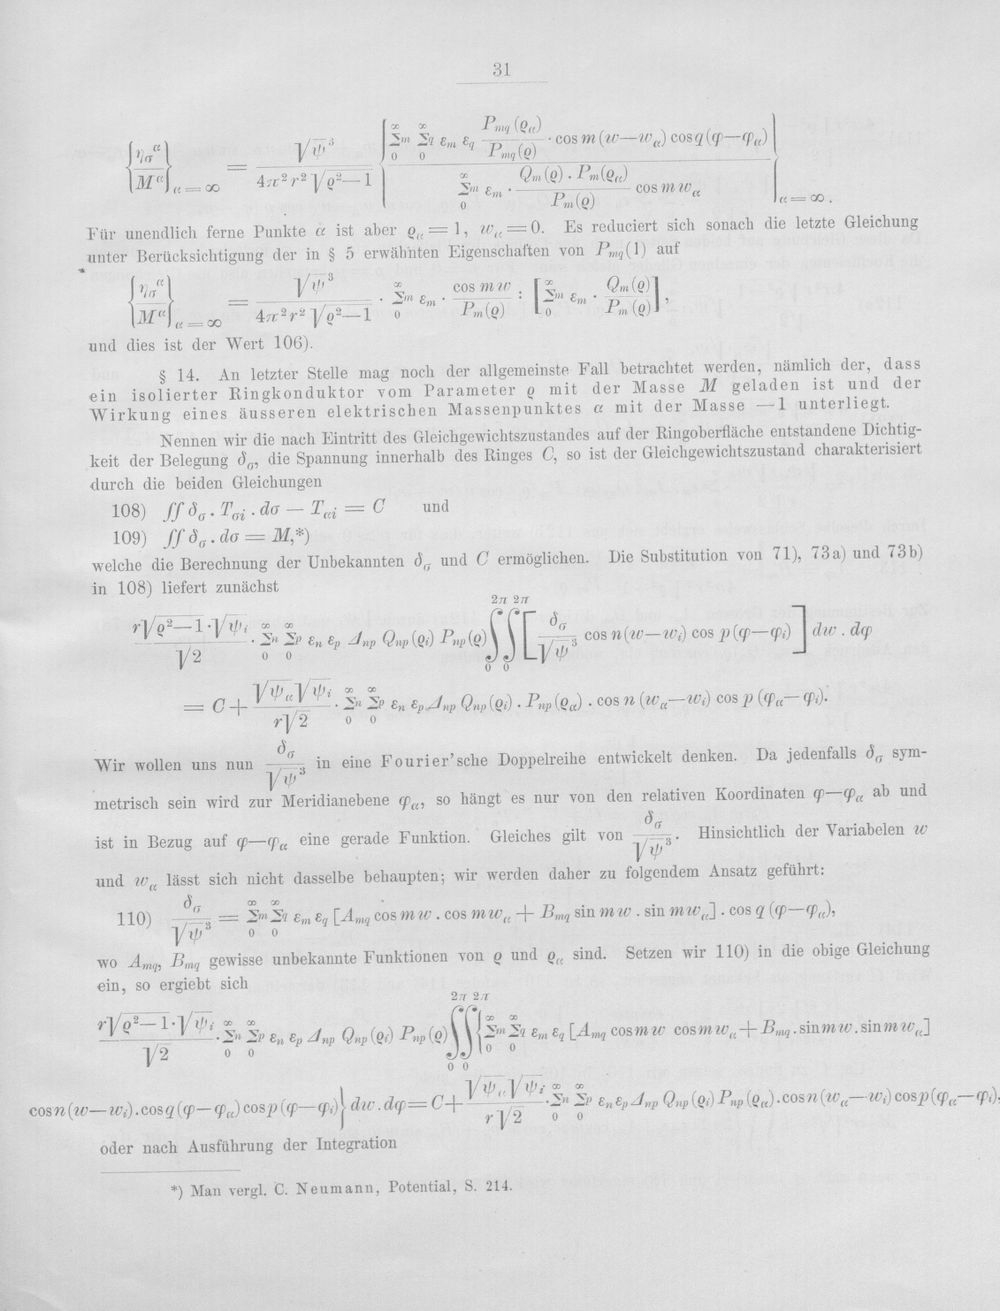 31
{η_σ^α / M^α}_{α=∞} = √ψ³ / (4π²r²√(ϱ²—1)) { Σm Σq (0…∞) ε_m ε_q P_mq(ϱ_α)/P_mq(ϱ) · cos m(w—w_α) cos q(φ—φ_α) / Σm (0…∞) ε_m · Q_m(ϱ) . P_m(ϱ_α)/P_m(ϱ) cos m w_α }_{α=∞.}
Für unendlich ferne Punkte α ist aber ϱ_α = 1, w_α = 0. Es reduciert sich sonach die letzte Gleichung
unter Berücksichtigung der in § 5 erwähnten Eigenschaften von P_mq(1) auf
{η_σ^α / M^α}_{α=∞} = √ψ³ / (4π²r²√(ϱ²—1)) · Σm (0…∞) ε_m · cos m w / P_m(ϱ) : [Σm (0…∞) ε_m · Q_m(ϱ)/P_m(ϱ)],
und dies ist der Wert 106).
§ 14. An letzter Stelle mag noch der allgemeinste Fall betrachtet werden, nämlich der, dass
ein isolierter Ringkonduktor vom Parameter ϱ mit der Masse M geladen ist und der
Wirkung eines äusseren elektrischen Massenpunktes α mit der Masse —1 unterliegt.
Nennen wir die nach Eintritt des Gleichgewichtszustandes auf der Ringoberfläche entstandene Dichtig-
keit der Belegung δ_σ, die Spannung innerhalb des Ringes C, so ist der Gleichgewichtszustand charakterisiert
durch die beiden Gleichungen
108) ∫∫ δ_σ . T_σi . dσ — T_αi = C und
109) ∫∫ δ_σ . dσ = M,*)
welche die Berechnung der Unbekannten δ_σ und C ermöglichen. Die Substitution von 71), 73a) und 73b)
in 108) liefert zunächst
r√(ϱ²—1)·√ψ_i / √2 · Σn Σp (0…∞) ε_n ε_p Δ_np Q_np(ϱ_i) P_np(ϱ) ∫∫ (0…2π) [δ_σ/√ψ³ cos n(w—w_i) cos p(φ—φ_i)] dw . dφ
= C + √ψ_α √ψ_i / r√2 · Σn Σp (0…∞) ε_n ε_p Δ_np Q_np(ϱ_i) . P_np(ϱ_α) . cos n (w_α—w_i) cos p (φ_α—φ_i).
Wir wollen uns nun δ_σ/√ψ³ in eine Fourier'sche Doppelreihe entwickelt denken. Da jedenfalls δ_σ sym-
metrisch sein wird zur Meridianebene φ_α, so hängt es nur von den relativen Koordinaten φ—φ_α ab und
ist in Bezug auf φ—φ_α eine gerade Funktion. Gleiches gilt von δ_σ/√ψ³. Hinsichtlich der Variabelen w
und w_α lässt sich nicht dasselbe behaupten; wir werden daher zu folgendem Ansatz geführt:
110) δ_σ/√ψ³ = Σm Σq (0…∞) ε_m ε_q [A_mq cos m w . cos m w_α + B_mq sin m w . sin m w_α] . cos q (φ—φ_α),
wo A_mq, B_mq gewisse unbekannte Funktionen von ϱ und ϱ_α sind. Setzen wir 110) in die obige Gleichung
ein, so ergiebt sich
r√(ϱ²—1)·√ψ_i / √2 · Σn Σp (0…∞) ε_n ε_p Δ_np Q_np(ϱ_i) P_np(ϱ) ∫∫ (0…2π) {Σm Σq (0…∞) ε_m ε_q [A_mq cos m w cos m w_α + B_mq . sin m w . sin m w_α]
cos n (w—w_i) . cos q (φ—φ_α) cos p (φ—φ_i)} dw . dφ = C + √ψ_α √ψ_i / r√2 · Σn Σp (0…∞) ε_n ε_p Δ_np Q_np(ϱ_i) P_np(ϱ_α) . cos n (w_α—w_i) cos p (φ_α—φ_i),
oder nach Ausführung der Integration
*) Man vergl. C. Neumann, Potential, S. 214.